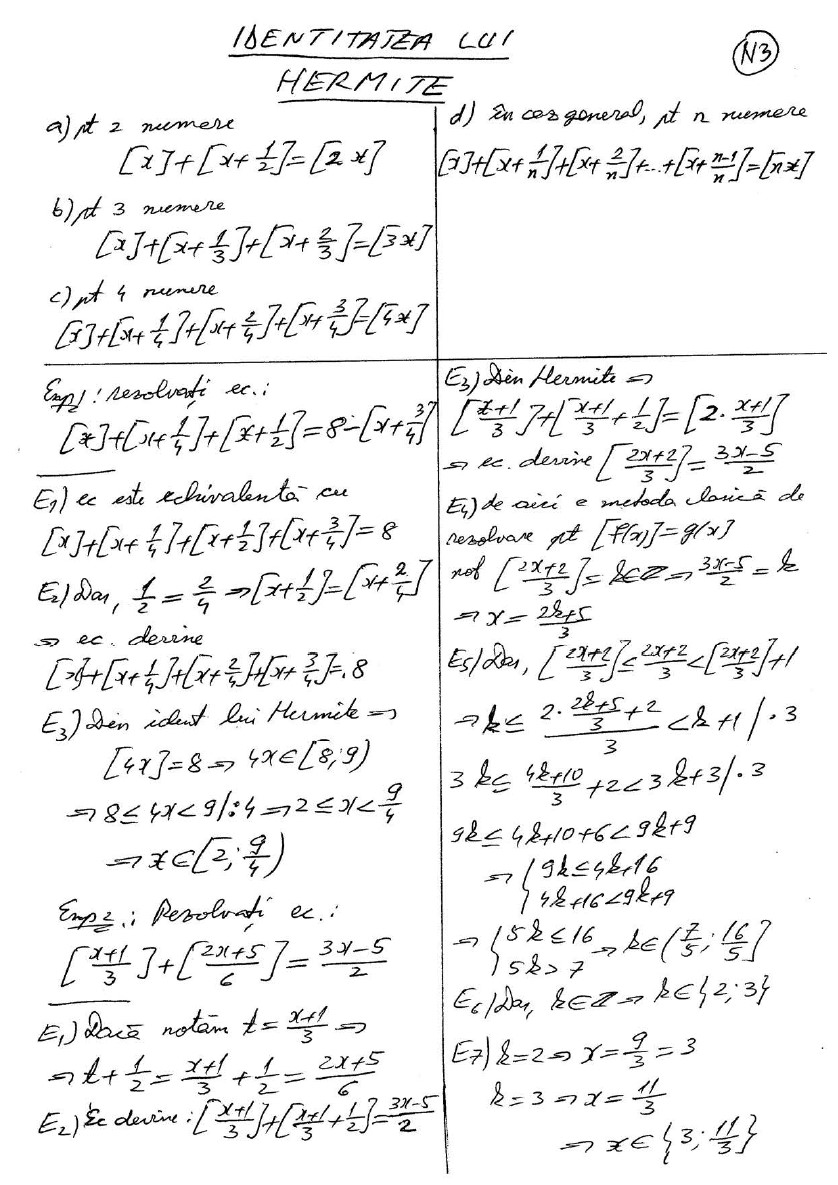 IDENTITATEA LUI
HERMITE
N3
a) pt 2 numere
[x]+[x+1/2]=[2x]
b) pt 3 numere
[x]+[x+1/3]+[x+2/3]=[3x]
c) pt 4 numere
[x]+[x+1/4]+[x+2/4]+[x+3/4]=[4x]
d) În caz general, pt n numere
[x]+[x+1/n]+[x+2/n]+...+[x+(n-1)/n]=[nx]
Exp1: rezolvați ec.:
[x]+[x+1/4]+[x+1/2]=8-[x+3/4]
E1) ec este echivalentă cu
[x]+[x+1/4]+[x+1/2]+[x+3/4]=8
E2) Dar, 1/2=2/4 ⇒[x+1/2]=[x+2/4]
⇒ ec. devine
[x]+[x+1/4]+[x+2/4]+[x+3/4]=8
E3) Din ident lui Hermite ⇒
[4x]=8 ⇒ 4x∈[8;9)
⇒ 8≤4x<9 |:4 ⇒ 2≤x<9/4
⇒ x∈[2;9/4)
Exp2.: Rezolvați ec.:
[(x+1)/3]+[(2x+5)/6]=(3x-5)/2
E1) Dacă notăm t=(x+1)/3 ⇒
⇒ t+1/2=(x+1)/3+1/2=(2x+5)/6
E2) Ec devine: [(x+1)/3]+[(x+1)/3+1/2]=(3x-5)/2
E3) Din Hermite ⇒
[(x+1)/3]+[(x+1)/3+1/2]=[2·(x+1)/3]
⇒ ec. devine [(2x+2)/3]=(3x-5)/2
E4) de aici e metoda clasică de
rezolvare pt [f(x)]=g(x)
not [(2x+2)/3]=k∈Z ⇒ (3x-5)/2=k
⇒ x=(2k+5)/3
E5) Dar, [(2x+2)/3]≤(2x+2)/3<[(2x+2)/3]+1
⇒ k≤(2·(2k+5)/3+2)/3<k+1 |·3
3k≤(4k+10)/3+2<3k+3 |·3
9k≤4k+10+6<9k+9
⇒ { 9k≤4k+16
4k+16<9k+9
⇒ { 5k≤16 ⇒ k∈(7/5;16/5]
5k>7
E6) Dar, k∈Z ⇒ k∈{2;3}
E7) k=2 ⇒ x=9/3=3
k=3 ⇒ x=11/3
⇒ x∈{3;11/3}